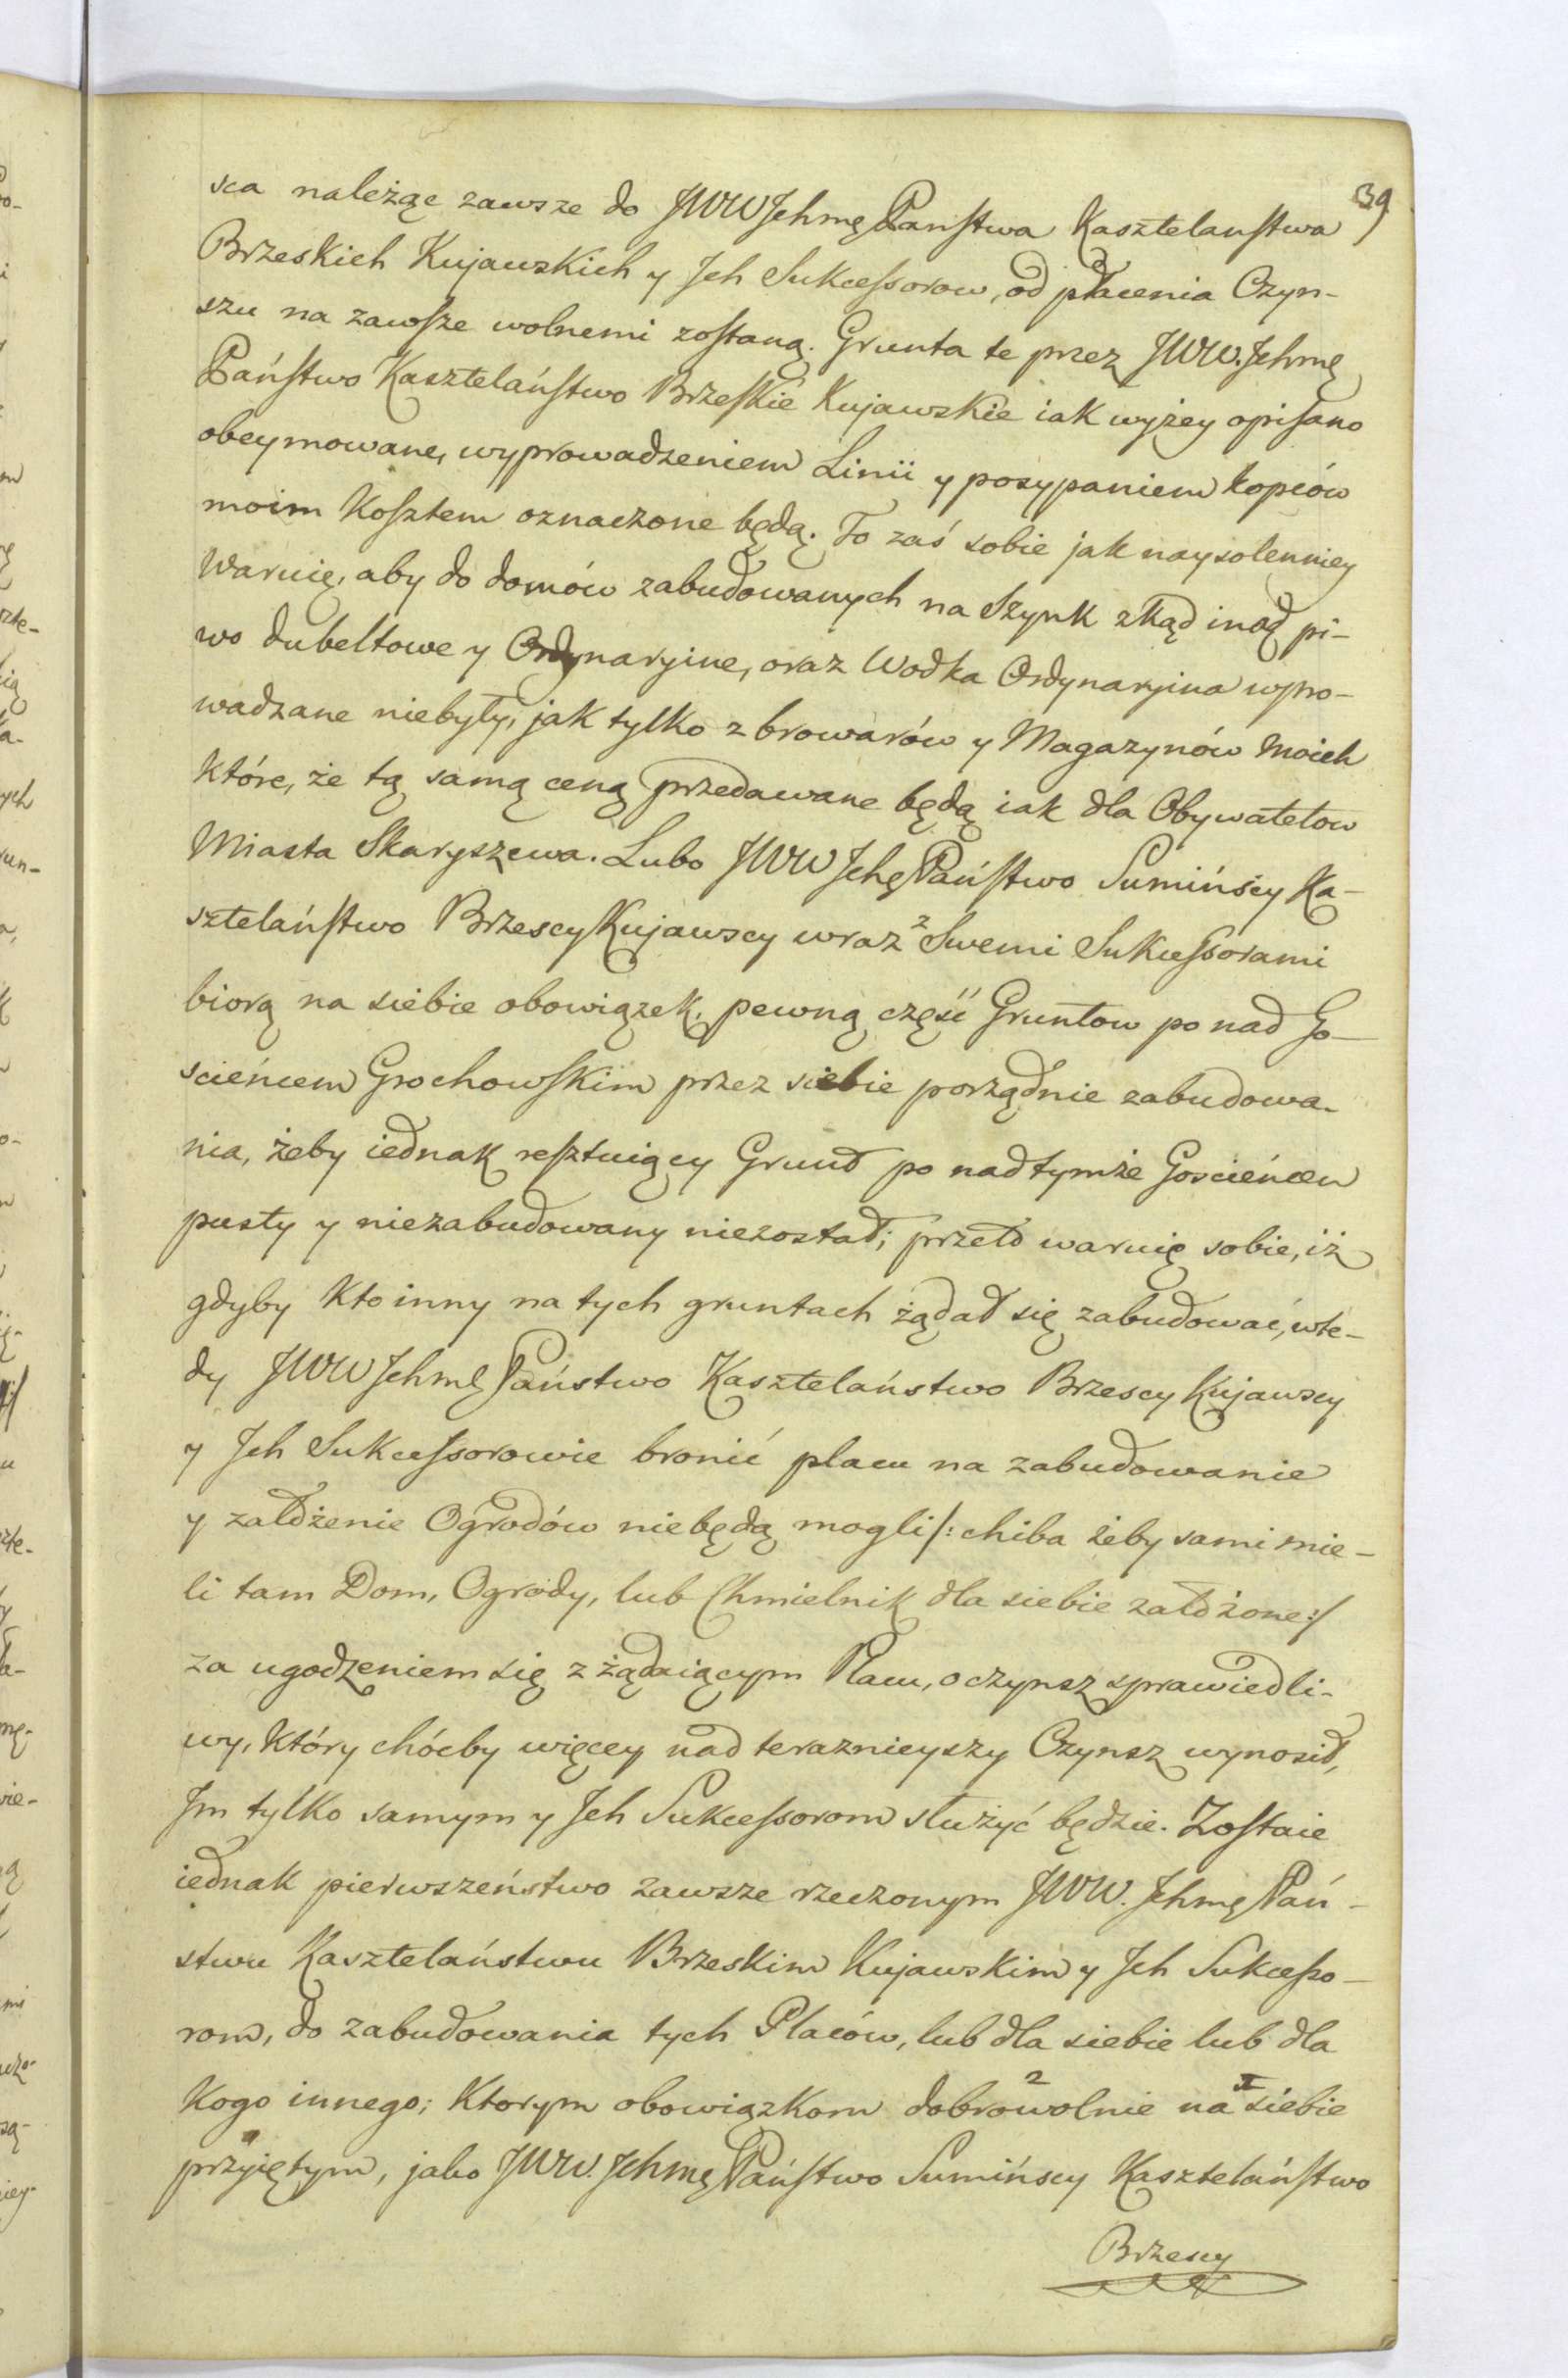 39
sca należąc zawsze do JWWJchmę Państwa Kasztelaństwa
Brzeskich Kujawskich y Jch Sukcessorow, od płacenia Czyn-
szu na zawsze wolnemi zostaną. Grunta te przez JWW. Jchmę
Państwo Kasztelaństwo Brzeskie Kujawskie iak wyżey opisano
obeymowane, wyprowadzeniem Linii y posypaniem kopców
moim Kosztem oznaczone będą. To zaś sobie jak naysolenniey
Waruię, aby do domów zabudowanych na Szynk zkąd inąd pi-
wo dubeltowe y Ordynaryine, oraz Wodka Ordynaryina wpro-
wadzane niebyły, jak tylko z browarów y Magazynów Moich
Które, że tą samą ceną przedawane będą iak dla Obywatelow
Miasta Skaryszewa. Lubo JWW Jchę Państwo Sumińscy Ka-
sztelaństwo Brzescy Kujawscy wraz z Swemi Sukcessorami
biorą na siebie obowiązek, pewną część Gruntow po nad Go-
scieńcem Grochowskim przez siebie porządnie zabudowa-
nia, żeby iednak resztuiący Grunt po nad tymże Gościeńcem
pusty y niezabudowany niezostał; przeto waruię sobie, iż
gdyby Kto inny na tych gruntach żądał się zabudować, wte-
dy JWW Jchmę Państwo Kasztelaństwo Brzescy Kujawscy
y Jch Sukcessorowie bronić placu na zabudowanie
y założenie Ogrodów niebędą mogli /: chiba żeby sami mie-
li tam Dom, Ogrody, lub Chmielnik dla siebie założone :/
za ugodzeniem się z żądaiącym Placu, o czynsz sprawiedli-
wy, Który chócby więcey nad teraznieyszy Czynsz wynosił,
Jm tylko samym y Jch Sukcessorom służyć będzie. Zostaie
iednak pierwszeństwo zawsze rzeczonym JWW. Jchmę Pań-
stwu Kasztelaństwu Brzeskim Kujawskim y Jch Sukcesso-
rom, do zabudowania tych Placów, lub dla siebie lub dla
Kogo innego; Ktorym obowiązkom dobrowolnie na siebie
przyiętym, jako JWW. Jchmę Państwo Sumińscy Kasztelaństwo
Brzescy